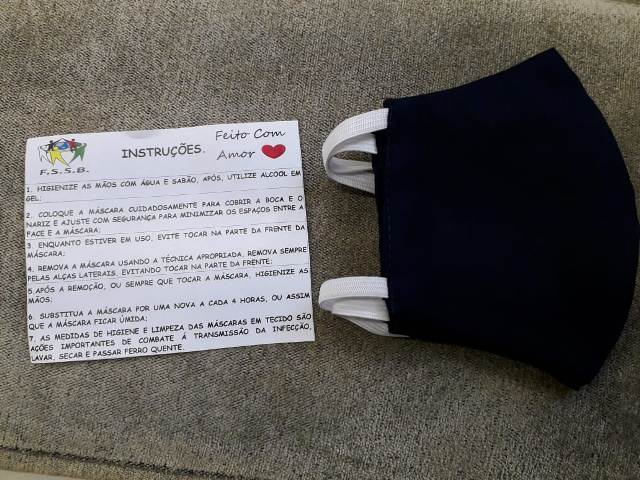 Feito Com
INSTRUÇÕES.
Amor
F.S.S.B.
1. HIGIENIZE AS MÃOS COM ÁGUA E SABÃO, APÓS, UTILIZE ALCOOL EM
GEL;
2. COLOQUE A MÁSCARA CUIDADOSAMENTE PARA COBRIR A BOCA E O
NARIZ E AJUSTE COM SEGURANÇA PARA MINIMIZAR OS ESPAÇOS ENTRE A
FACE E A MÁSCARA;
3. ENQUANTO ESTIVER EM USO, EVITE TOCAR NA PARTE DA FRENTE DA
MÁSCARA;
4. REMOVA A MÁSCARA USANDO A TÉCNICA APROPRIADA, REMOVA SEMPRE
PELAS ALÇAS LATERAIS, EVITANDO TOCAR NA PARTE DA FRENTE;
5.APÓS A REMOÇÃO, OU SEMPRE QUE TOCAR A MÁSCARA, HIGIENIZE AS
MÃOS;
6. SUBSTITUA A MÁSCARA POR UMA NOVA A CADA 4 HORAS, OU ASSIM
QUE A MÁSCARA FICAR ÚMIDA;
7. AS MEDIDAS DE HIGIENE E LIMPEZA DAS MÁSCARAS EM TECIDO SÃO
AÇÕES IMPORTANTES DE COMBATE Á TRANSMISSÃO DA INFECÇÃO,
LAVAR, SECAR E PASSAR FERRO QUENTE.